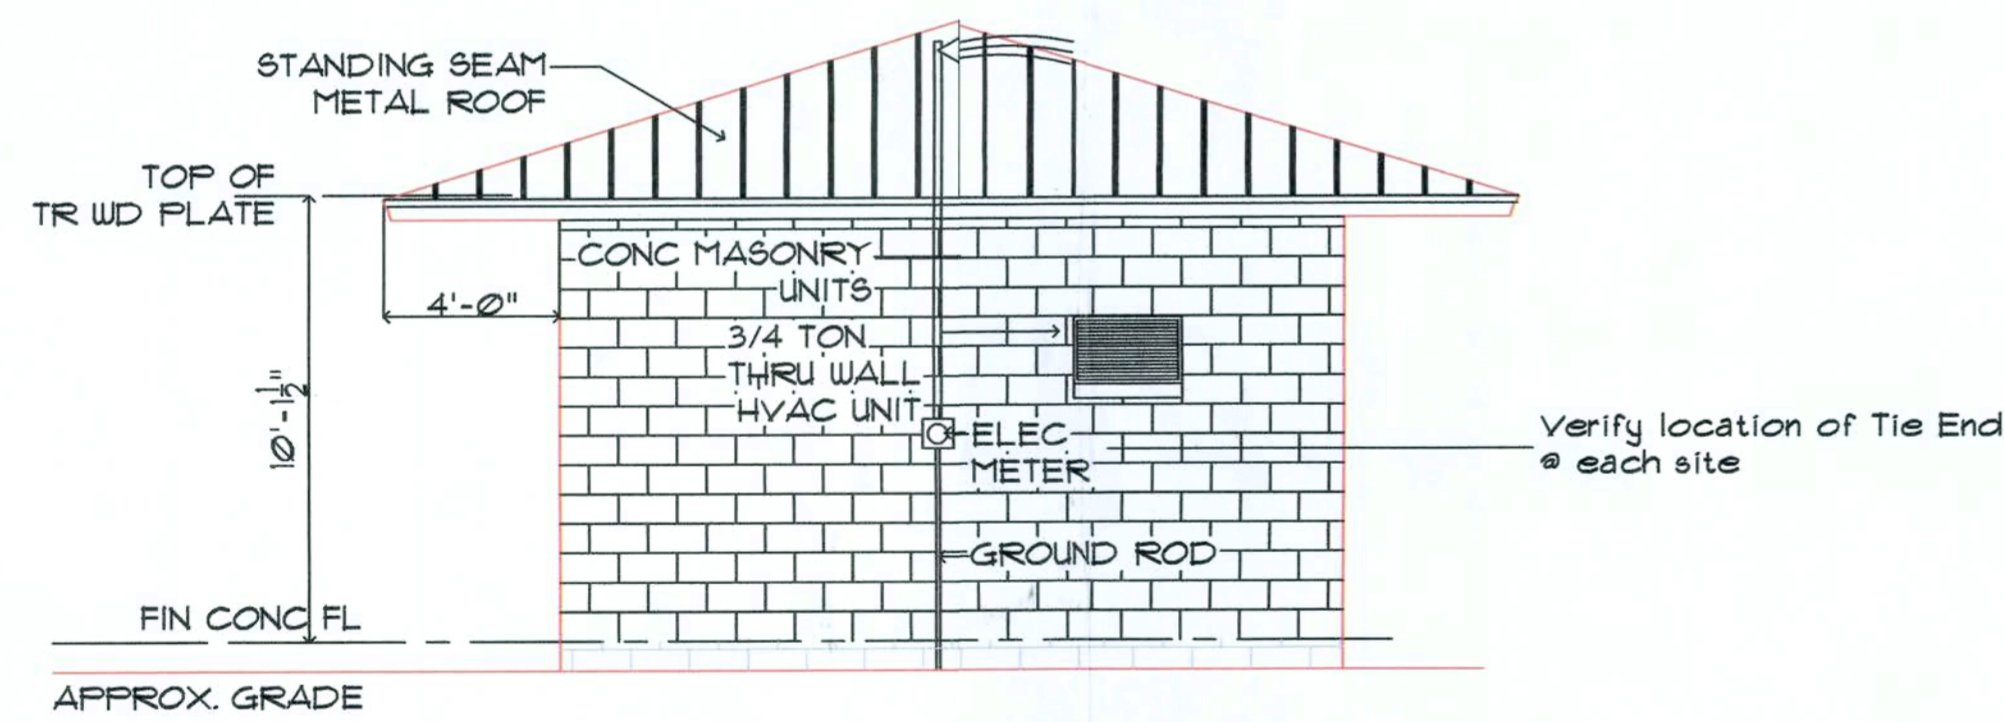 STANDING SEAM
METAL ROOF
TOP OF
TR WD PLATE
CONC MASONRY
UNITS
4'-0"
3/4 TON
THRU WALL
HVAC UNIT
10'-1 1/2"
ELEC
METER
Verify location of Tie End
@ each site
GROUND ROD
FIN CONC FL
APPROX. GRADE